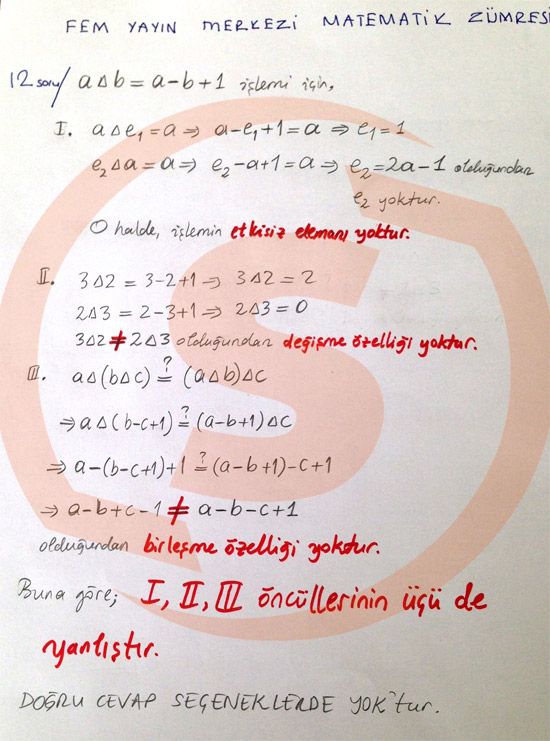 FEM YAYIN MERKEZİ MATEMATİK ZÜMRESİ
12 soru/ a∆b = a-b+1 işlemi için,
I. a∆e₁=a ⇒ a-e₁+1=a ⇒ e₁=1
e₂∆a=a ⇒ e₂-a+1=a ⇒ e₂=2a-1 olduğundan
e₂ yoktur.
O halde, işlemin etkisiz elemanı yoktur.
II. 3∆2 = 3-2+1 ⇒ 3∆2 = 2
2∆3 = 2-3+1 ⇒ 2∆3 = 0
3∆2 ≠ 2∆3 olduğundan değişme özelliği yoktur.
III. a∆(b∆c) ≟ (a∆b)∆c
⇒ a∆(b-c+1) ≟ (a-b+1)∆c
⇒ a-(b-c+1)+1 ≟ (a-b+1)-c+1
⇒ a-b+c-1 ≠ a-b-c+1
olduğundan birleşme özelliği yoktur.
Buna göre; I, II, III öncüllerinin üçü de
yanlıştır.
DOĞRU CEVAP SEÇENEKLERDE YOK'tur.